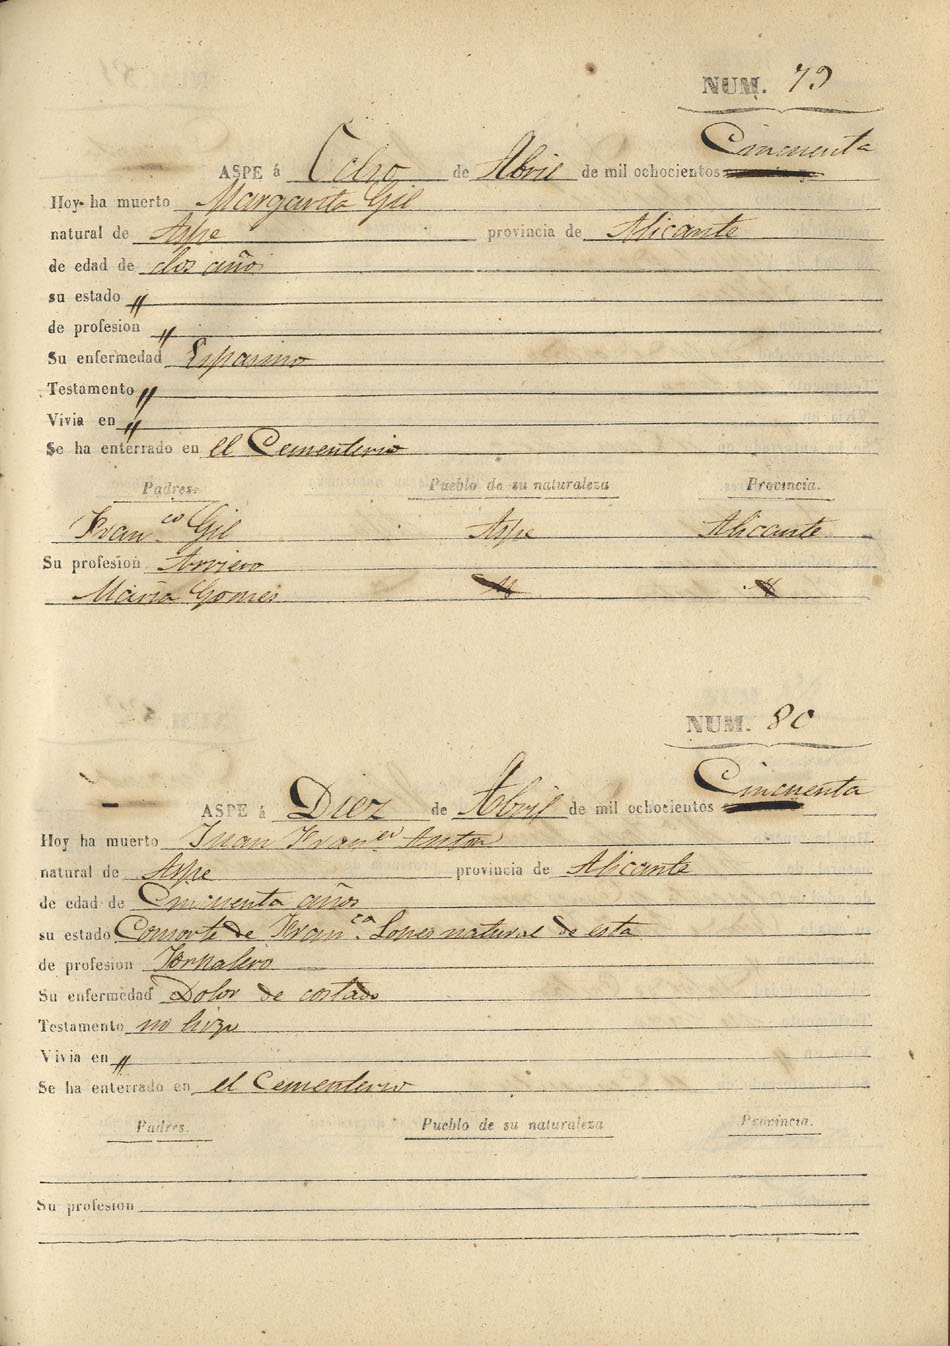 NUM. 79
Cincuenta
ASPE á Ocho de Abril de mil ochocientos
Hoy ha muerto Margarita Gil
natural de Aspe provincia de Alicante
de edad de dos años
su estado "
de profesion "
Su enfermedad Espasmo
Testamento "
Vivia en "
Se ha enterrado en el Cementerio
Padres. Pueblo de su naturaleza Provincia.
Fran.co Gil Aspe Alicante
Su profesion Arriero
Maria Gomes " "
NUM. 80
Cincuenta
ASPE á Diez de Abril de mil ochocientos
Hoy ha muerto Juan Fran.co Anton
natural de Aspe provincia de Alicante
de edad de Cincuenta años
su estado Consorte de Fran.ca Lopes natural de esta
de profesion Jornalero
Su enfermedad Dolor de costado
Testamento no hizo
Vivia en "
Se ha enterrado en el Cementerio
Padres. Pueblo de su naturaleza Provincia.
Su profesion